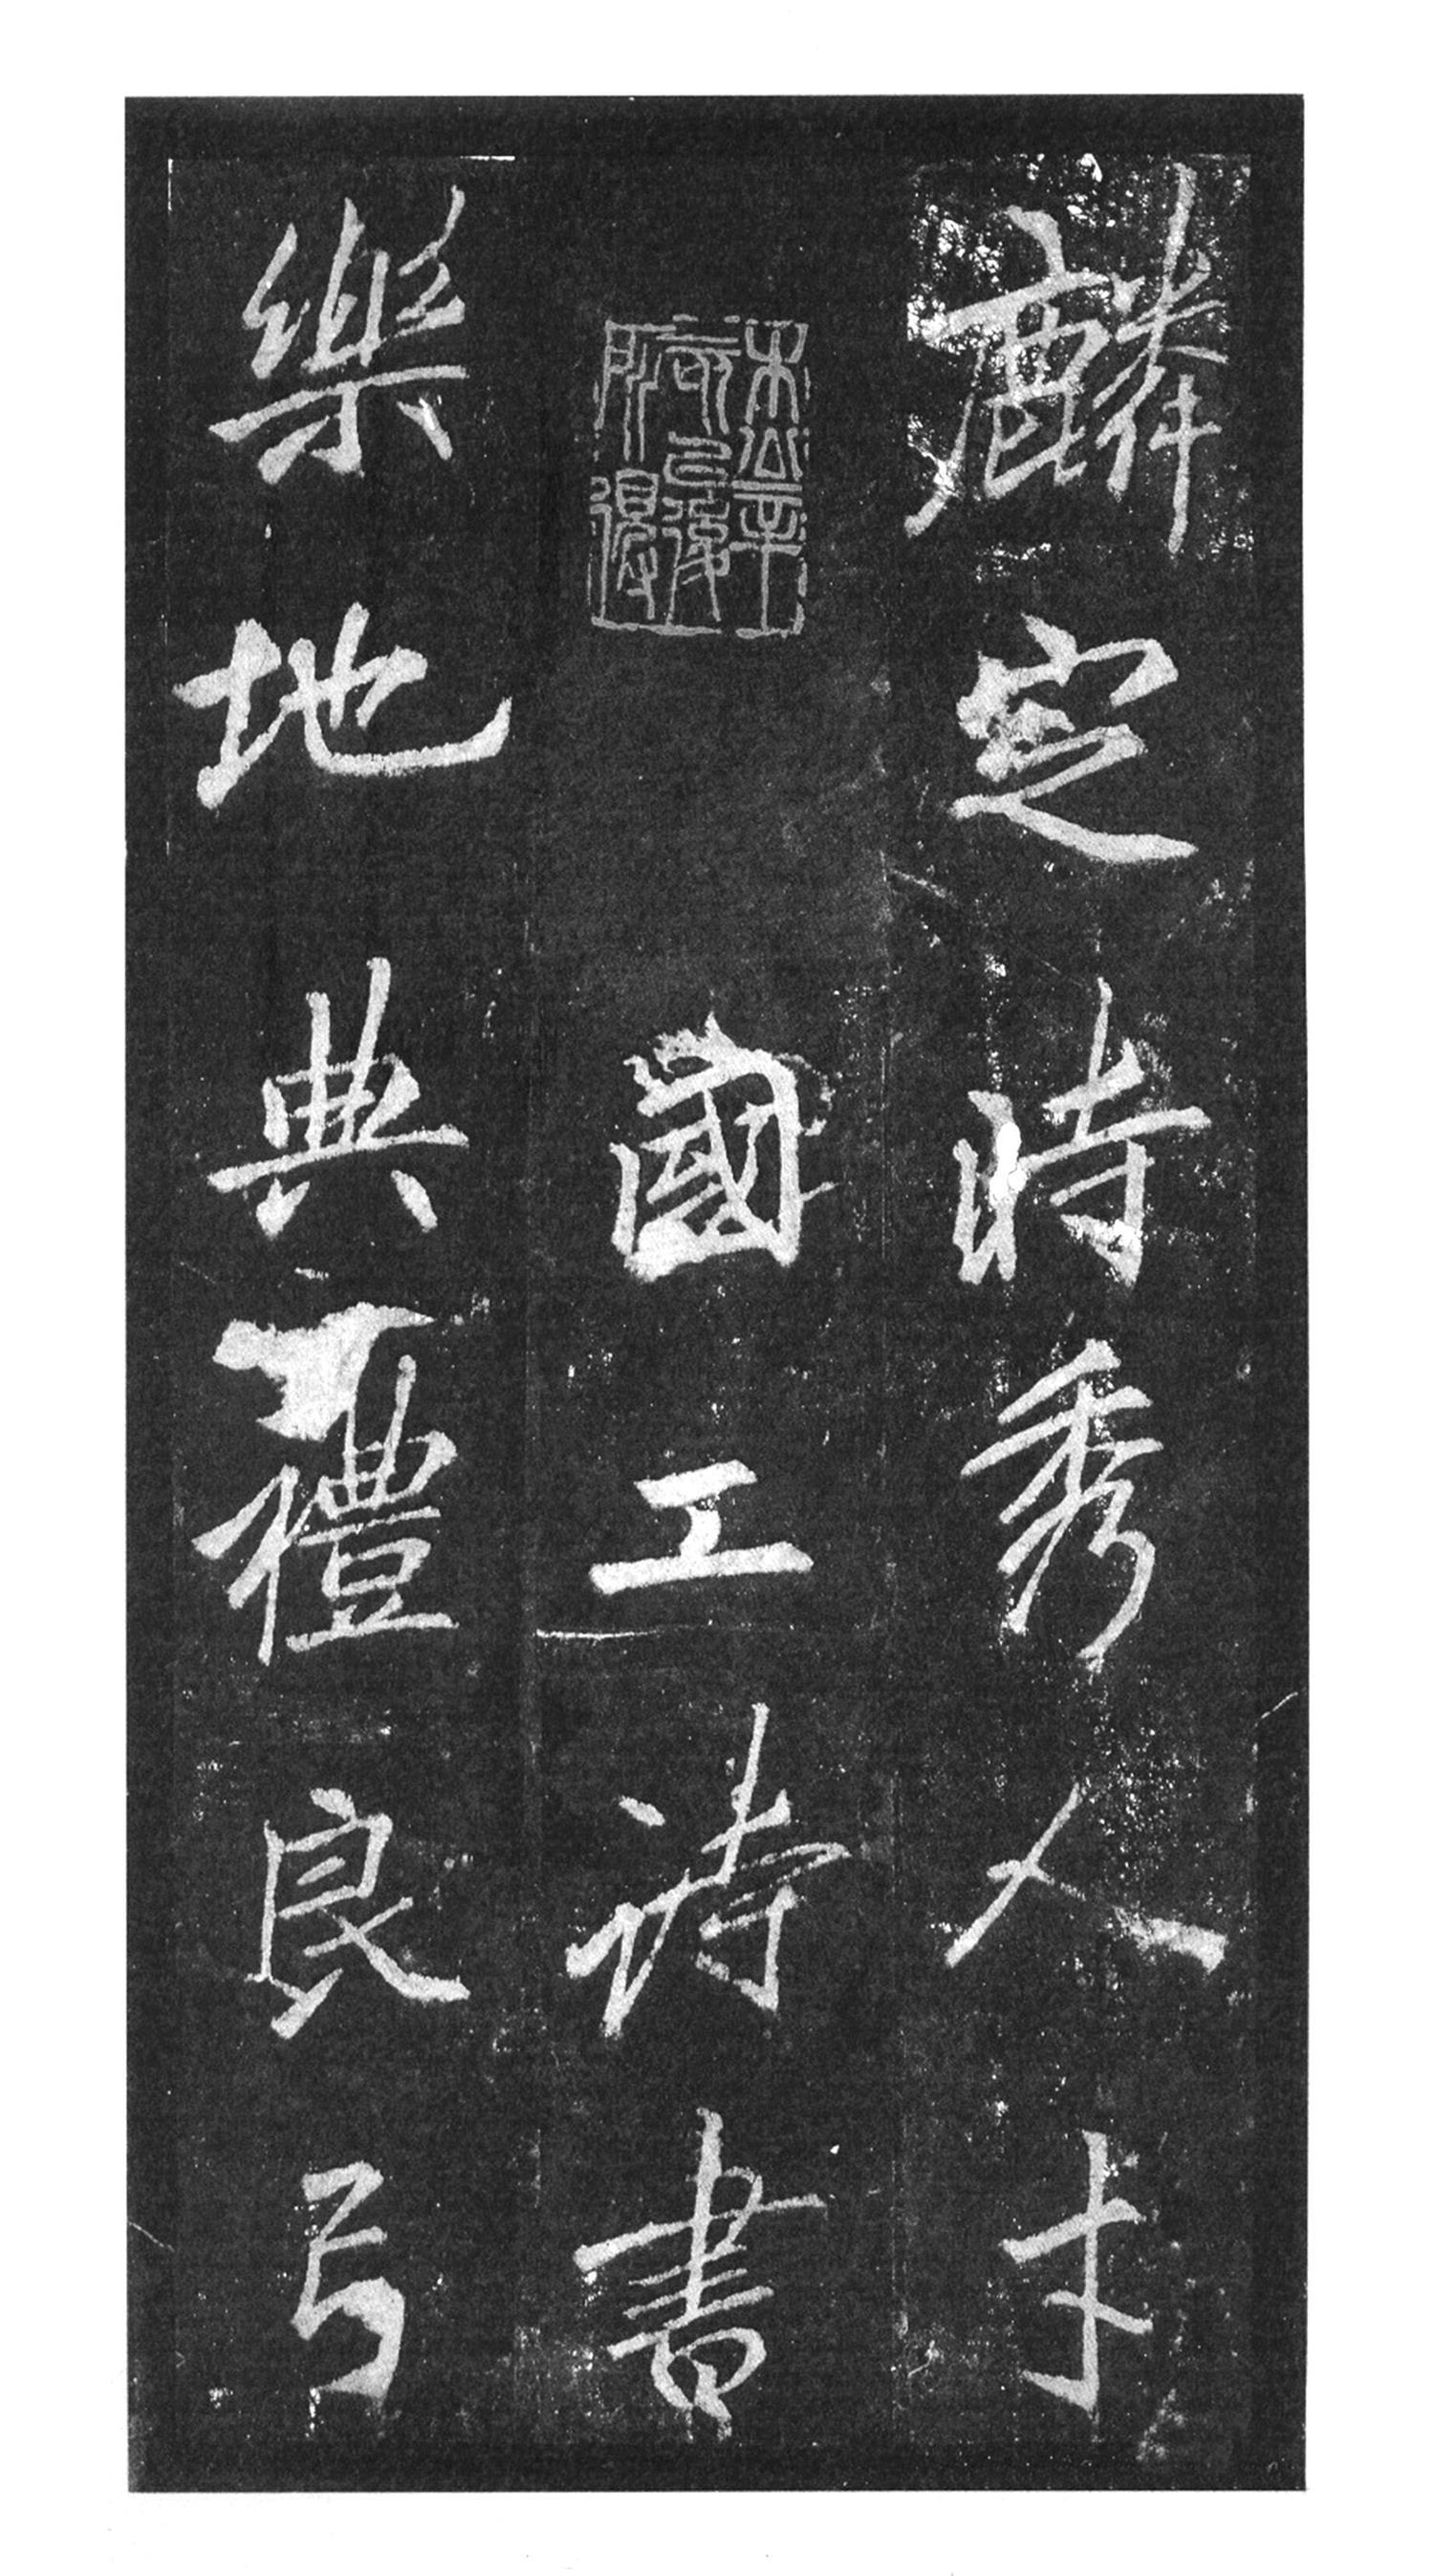 麟定時秀人才
國工詩書
樂地典禮良弓